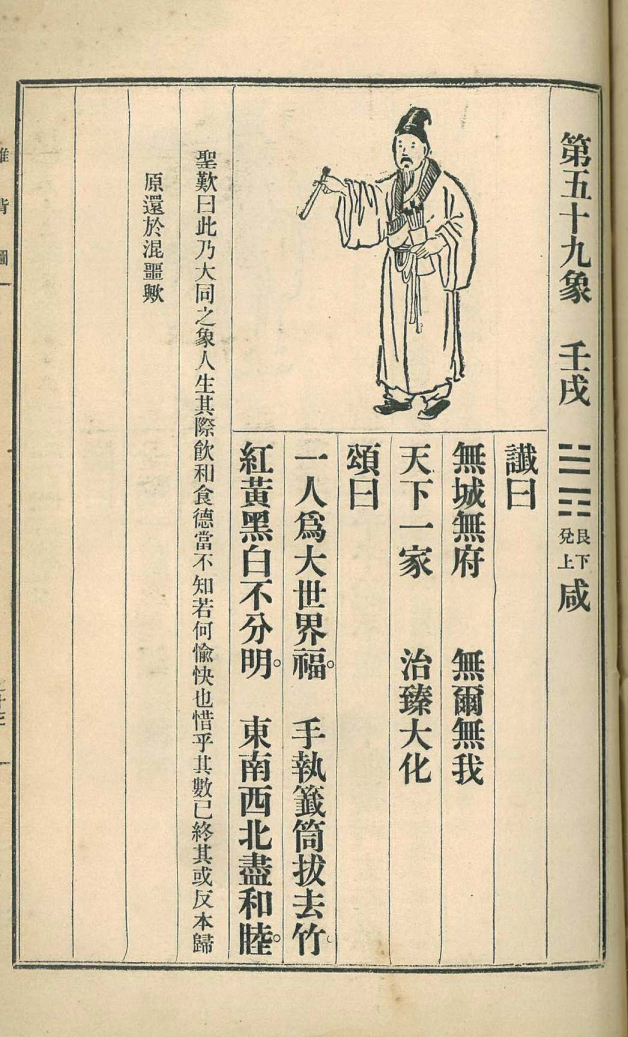 第五十九象　壬戌　☱☶　艮下兌上　咸
讖曰
無城無府　無爾無我
天下一家　治臻大化
頌曰
一人爲大世界福。手執籤筒拔去竹。
紅黃黑白不分明。東南西北盡和睦。
聖歎曰此乃大同之象人生其際飮和食德當不知若何愉快也惜乎其數已終其或反本歸
原還於混噩歟
推背圖